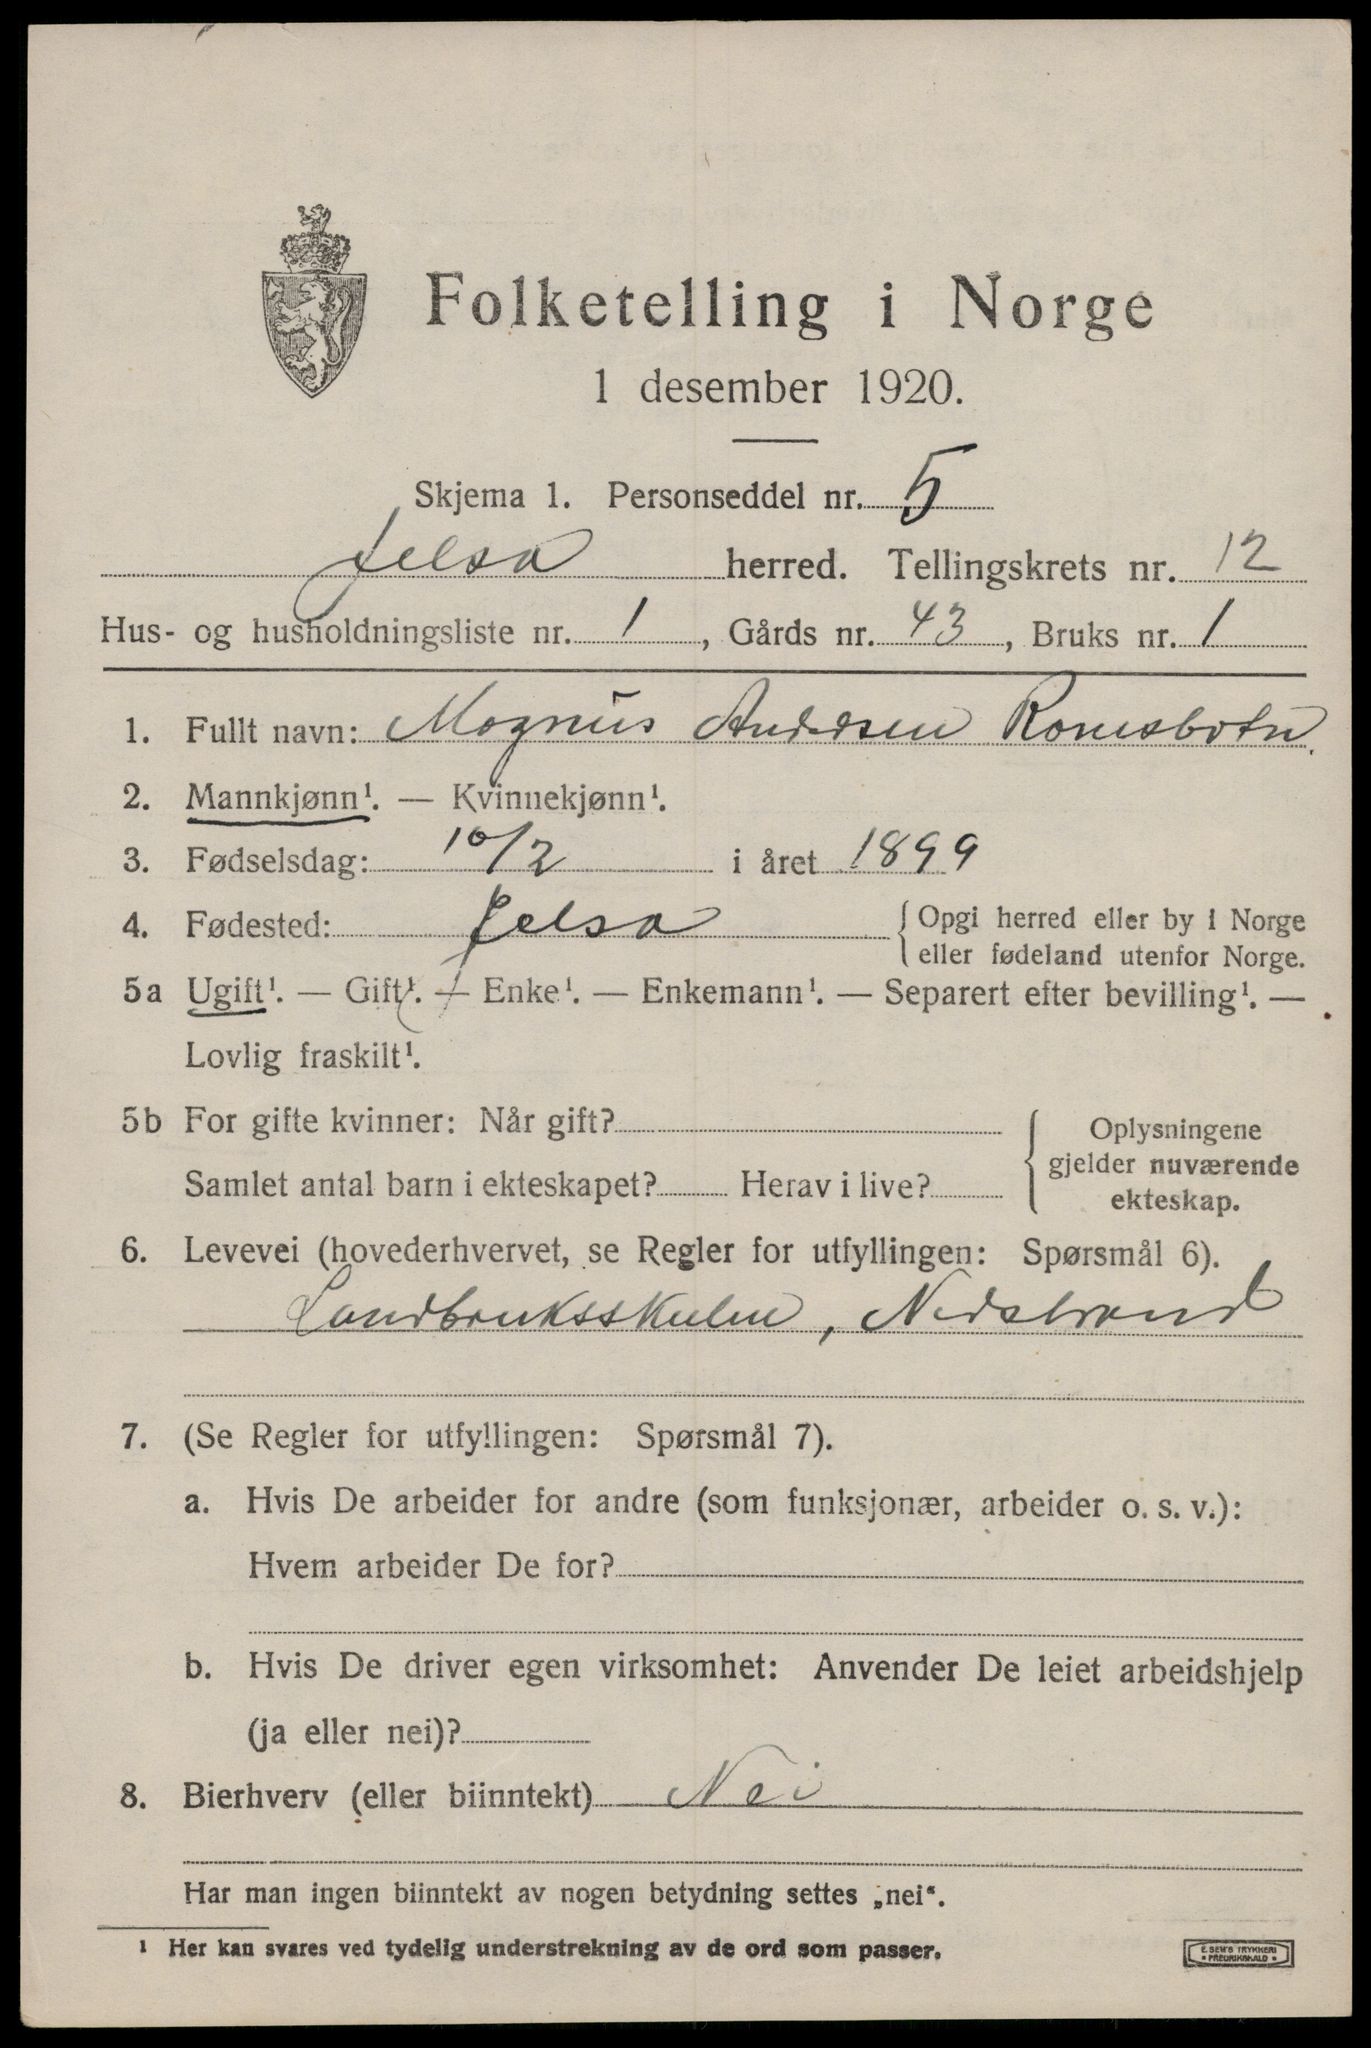 Folketelling i Norge
1 desember 1920.
Skjema 1. Personseddel nr. 5
Jelsa herred. Tellingskrets nr. 12
Hus- og husholdningsliste nr. 1, Gårds nr. 43, Bruks nr. 1
1. Fullt navn: Magnus Andersen Romsbotn.
2. Mannkjønn¹. — Kvinnekjønn¹.
3. Fødselsdag: 10/2 i året 1899
4. Fødested: Jelsa { Opgi herred eller by i Norge
eller fødeland utenfor Norge.
5a Ugift¹. — Gift¹. — Enke¹. — Enkemann¹. — Separert efter bevilling¹. —
Lovlig fraskilt¹.
5b For gifte kvinner: Når gift?
Samlet antal barn i ekteskapet? Herav i live?
Oplysningene
gjelder nuværende
ekteskap.
6. Levevei (hovederhvervet, se Regler for utfyllingen: Spørsmål 6).
Landbruksskulen, Nedstrand
7. (Se Regler for utfyllingen: Spørsmål 7).
a. Hvis De arbeider for andre (som funksjonær, arbeider o. s. v.):
Hvem arbeider De for?
b. Hvis De driver egen virksomhet: Anvender De leiet arbeidshjelp
(ja eller nei)?
8. Bierhverv (eller biinntekt) Nei
Har man ingen biinntekt av nogen betydning settes „nei“.
¹ Her kan svares ved tydelig understrekning av de ord som passer.
E. SEM'S TRYKKERI
• FREDRIKSHALD •